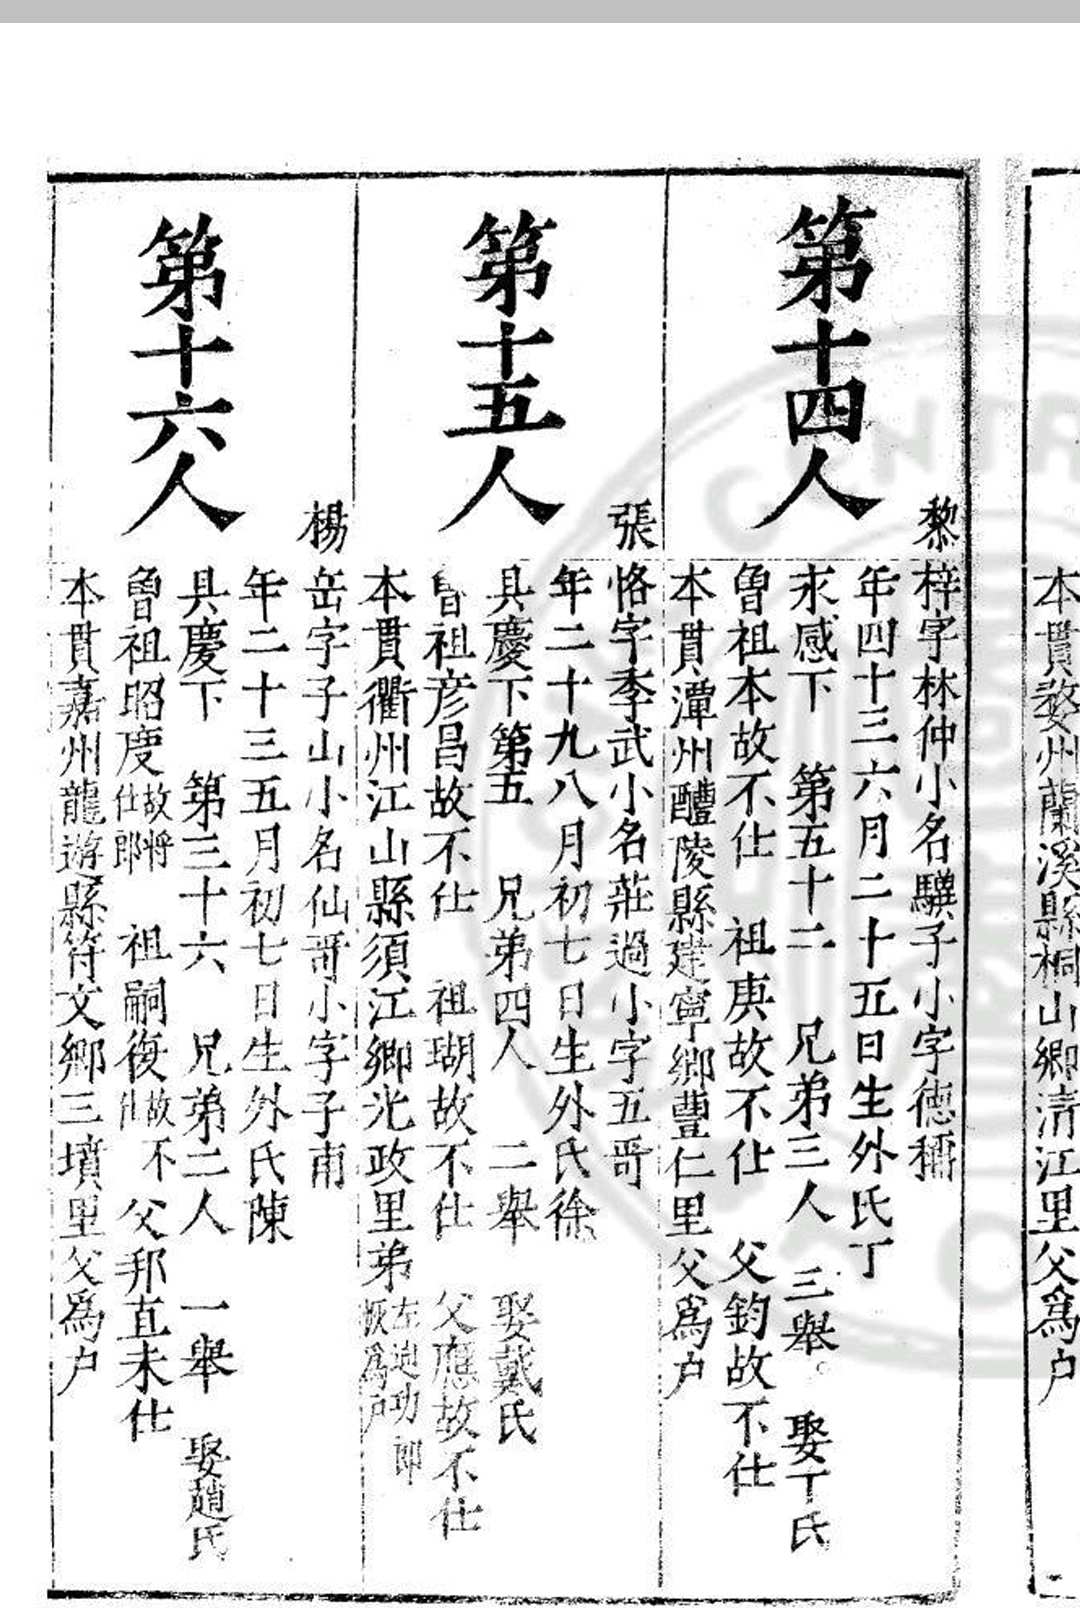 本貫婺州蘭溪縣桐山鄉淸江里父爲户
第十四人
黎梓字林仲小名驥子小字德稱
年四十三六月二十五日生外氏丁
求感下　第五十二　兄弟三人　三舉　娶丁氏
曾祖本故不仕　祖庚故不仕　父鈞故不仕
本貫潭州醴陵縣建寧鄉豐仁里父爲户
第十五人
張恪字季武小名莊過小字五哥
年二十九八月初七日生外氏徐
具慶下第五　兄弟四人　二舉　娶戴氏
曾祖彦昌故不仕　祖瑚故不仕　父應故不仕
本貫衢州江山縣須江鄉光政里弟左迪功郎恢爲户
第十六人
楊岳字子山小名仙哥小字子甫
年二十三五月初七日生外氏陳
具慶下　第三十六　兄弟二人　一舉　娶趙氏
曾祖昭度故將仕郎　祖嗣復故不仕　父邦直未仕
本貫嘉州龍遊縣符文鄉三墳里父爲户